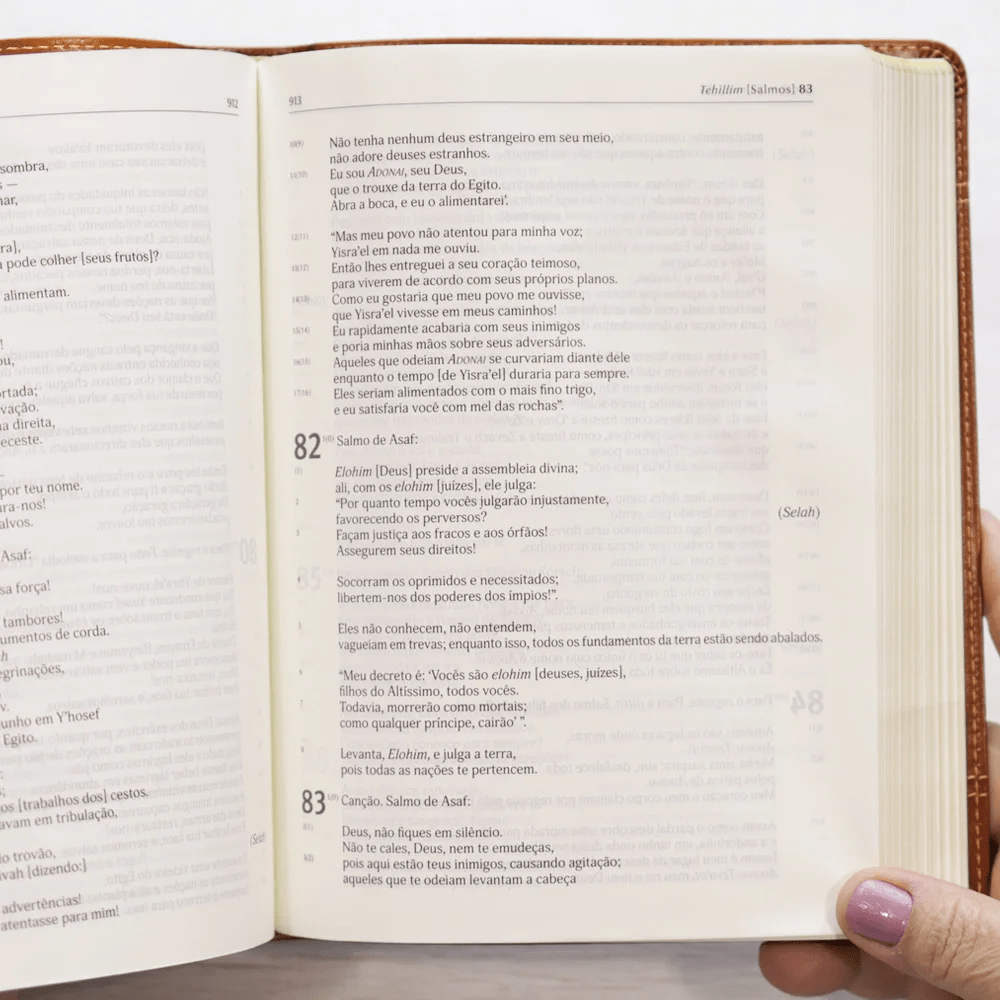 912
sombra,
s —
nar,
ra],
a pode colher [seus frutos]?
alimentam.
s!
ou,
ortada;
vação.
na direita,
eceste.
por teu nome.
ura-nos!
alvos.
Asaf:
sa força!
tambores!
umentos de corda.
h
egrinações,
v.
unho em Y'hosef
Egito.
os [trabalhos dos] cestos.
avam em tribulação,
(Selah
o trovão,
vah [dizendo:]
advertências!
atentasse para mim!
913
Tehillim [Salmos] 83
10(9) Não tenha nenhum deus estrangeiro em seu meio,
não adore deuses estranhos.
11(10) Eu sou ADONAI, seu Deus,
que o trouxe da terra do Egito.
Abra a boca, e eu o alimentarei'.
12(11) “Mas meu povo não atentou para minha voz;
Yisra'el em nada me ouviu.
13(12) Então lhes entreguei a seu coração teimoso,
para viverem de acordo com seus próprios planos.
14(13) Como eu gostaria que meu povo me ouvisse,
que Yisra'el vivesse em meus caminhos!
15(14) Eu rapidamente acabaria com seus inimigos
e poria minhas mãos sobre seus adversários.
16(15) Aqueles que odeiam ADONAI se curvariam diante dele
enquanto o tempo [de Yisra'el] duraria para sempre.
17(16) Eles seriam alimentados com o mais fino trigo,
e eu satisfaria você com mel das rochas”.
82 1(0) Salmo de Asaf:
(1) Elohim [Deus] preside a assembleia divina;
ali, com os elohim [juízes], ele julga:
2 “Por quanto tempo vocês julgarão injustamente,
favorecendo os perversos? (Selah)
3 Façam justiça aos fracos e aos órfãos!
Assegurem seus direitos!
4 Socorram os oprimidos e necessitados;
libertem-nos dos poderes dos ímpios!”.
5 Eles não conhecem, não entendem,
vagueiam em trevas; enquanto isso, todos os fundamentos da terra estão sendo abalados.
6 “Meu decreto é: ‘Vocês são elohim [deuses, juízes],
filhos do Altíssimo, todos vocês.
7 Todavia, morrerão como mortais;
como qualquer príncipe, cairão’ ”.
8 Levanta, Elohim, e julga a terra,
pois todas as nações te pertencem.
83 1(0) Canção. Salmo de Asaf:
2(1) Deus, não fiques em silêncio.
Não te cales, Deus, nem te emudeças,
3(2) pois aqui estão teus inimigos, causando agitação;
aqueles que te odeiam levantam a cabeça